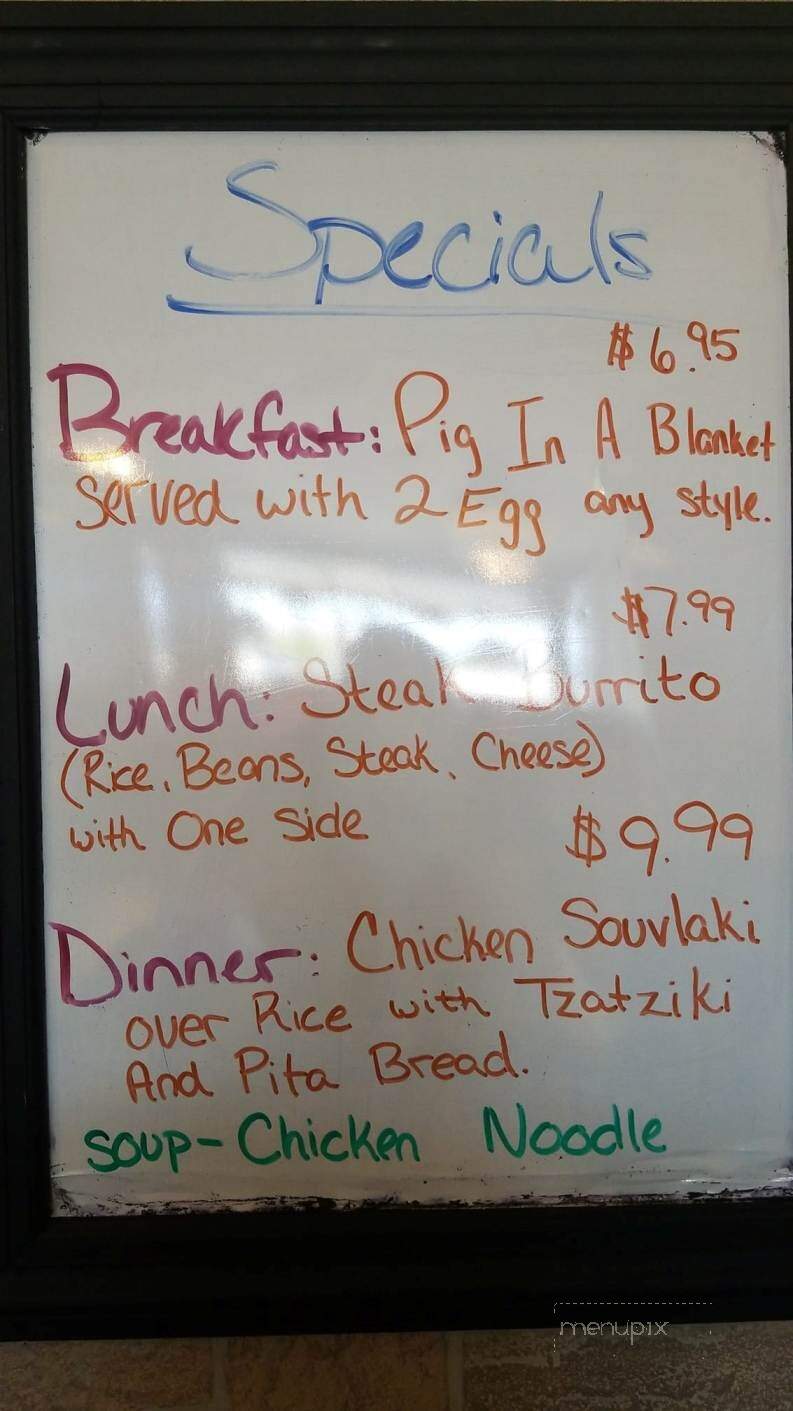 Specials
$6.95
Breakfast: Pig In A Blanket
served with 2 Egg any style.
$7.99
Lunch: Steak Burrito
(Rice, Beans, Steak, Cheese)
with One Side
$9.99
Dinner: Chicken Souvlaki
over Rice with Tzatziki
And Pita Bread.
soup- Chicken Noodle
menupix